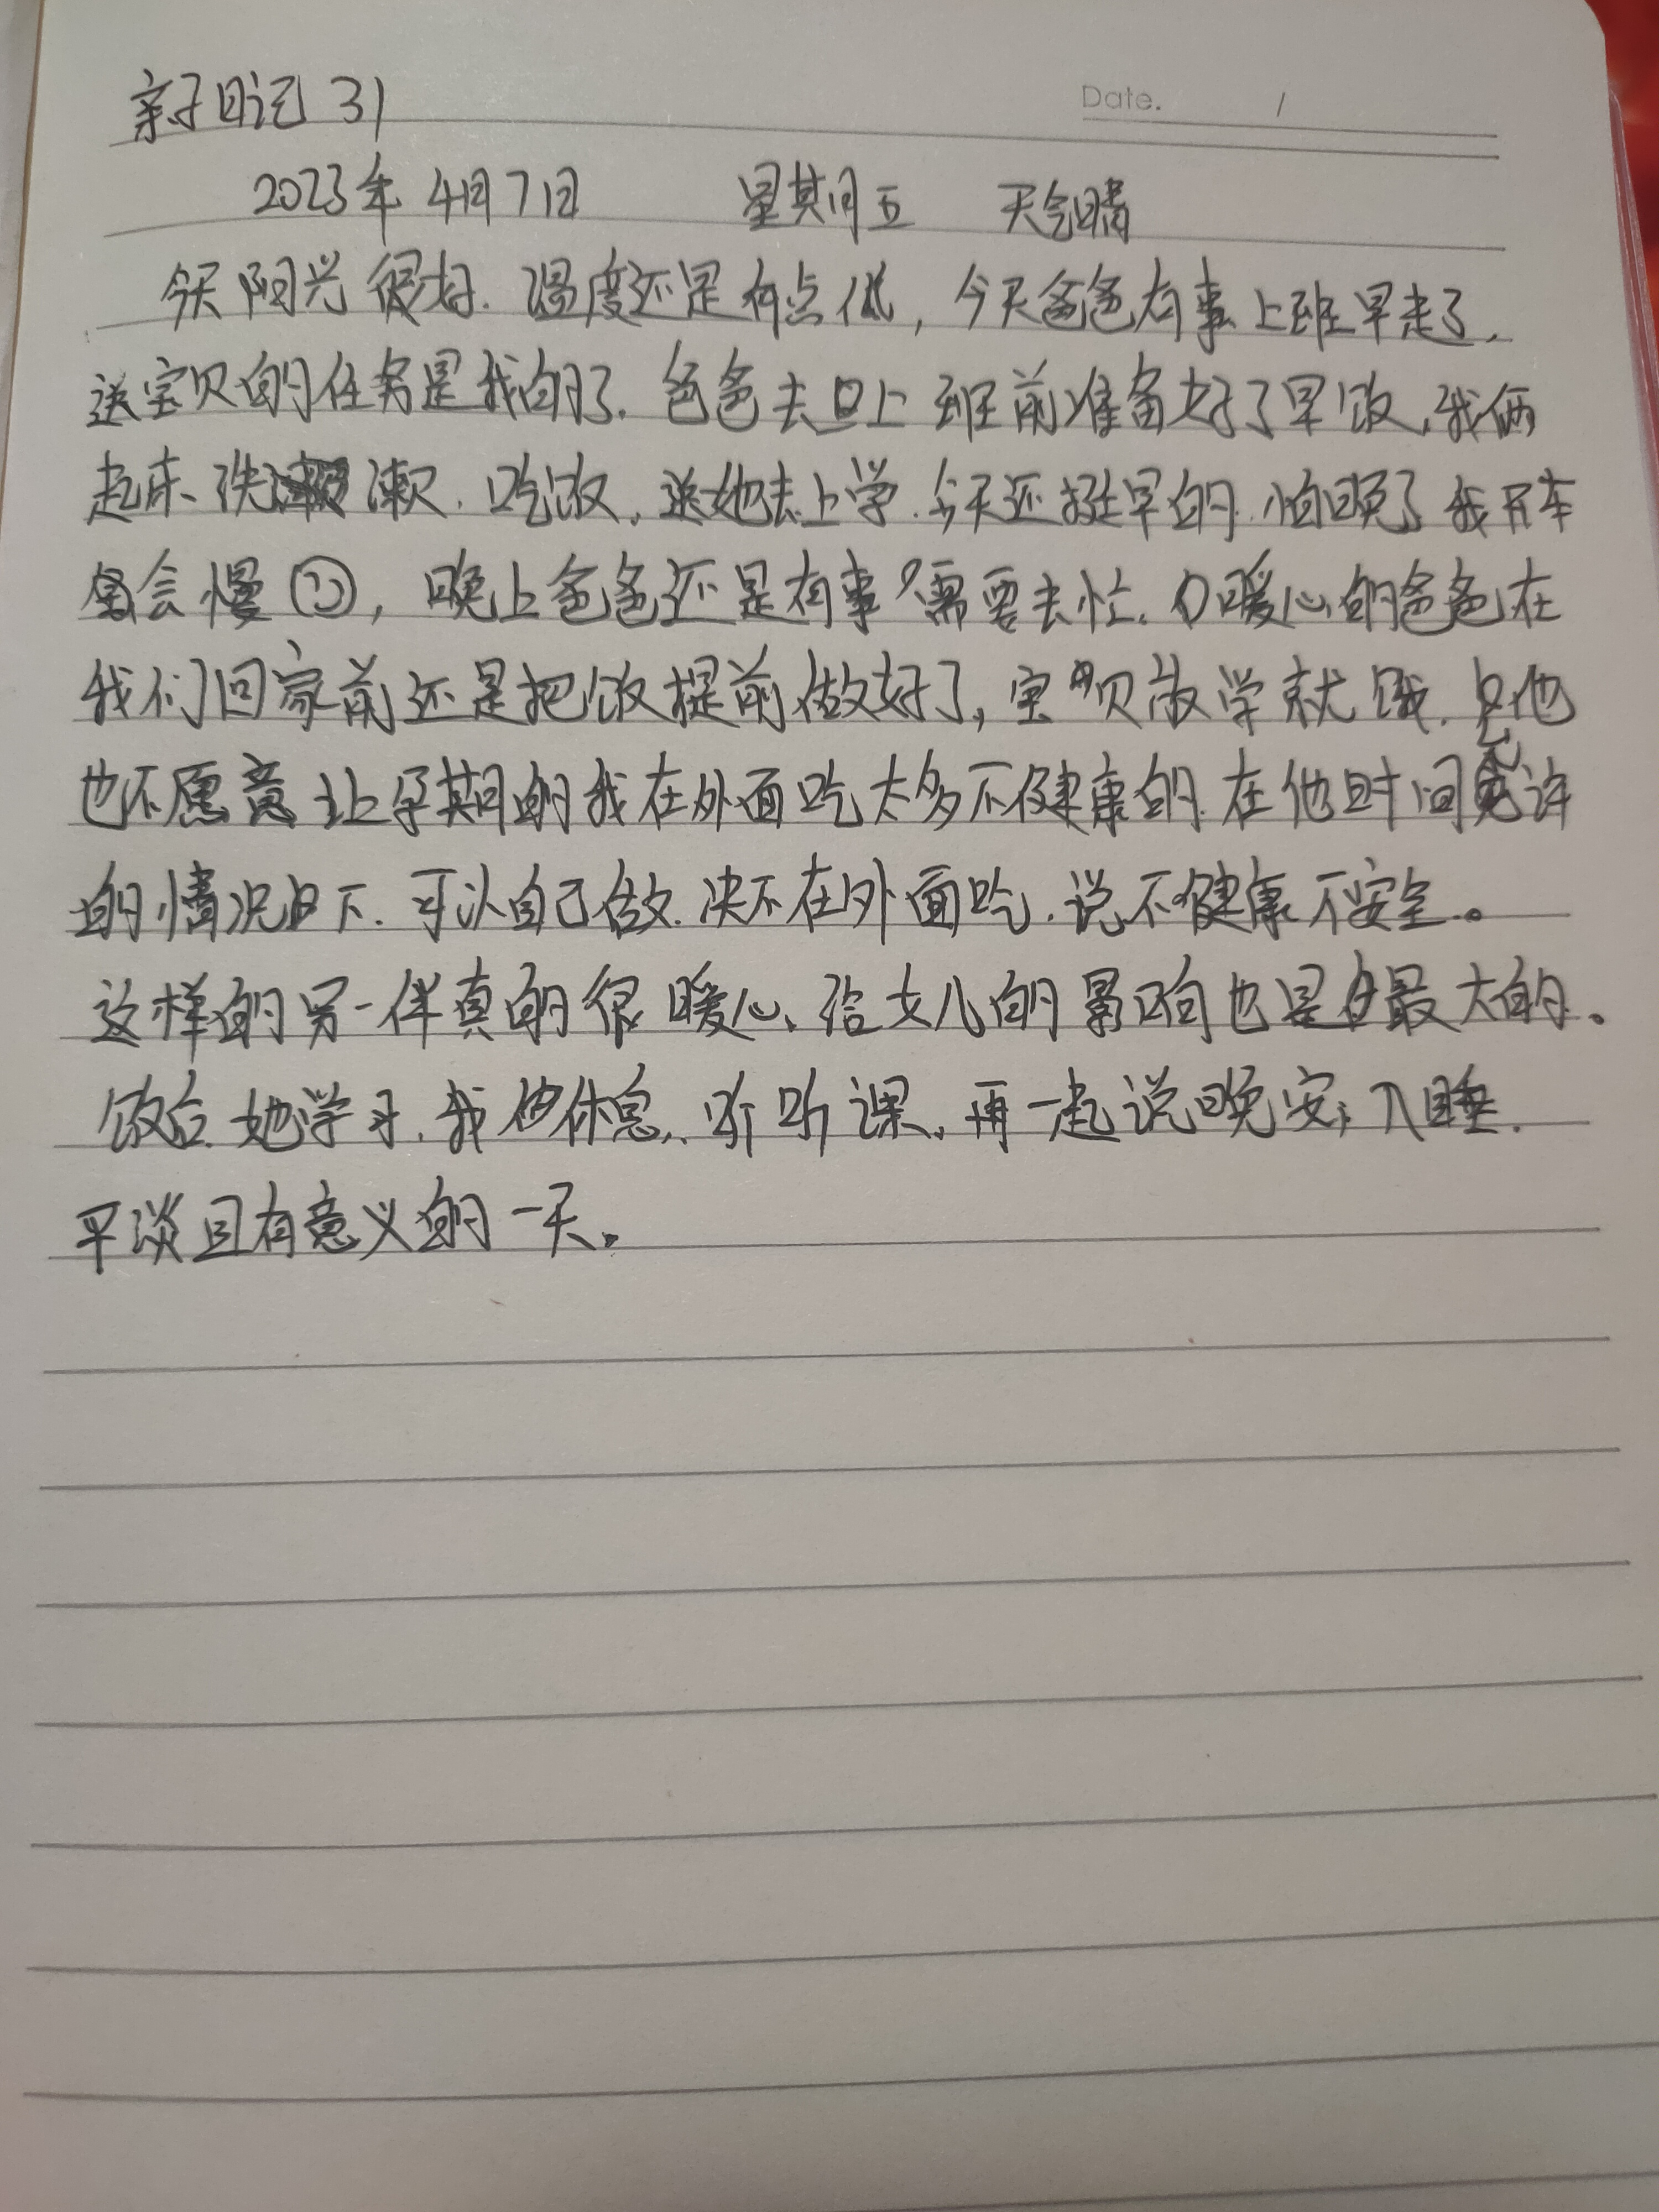 亲子日记 31
Date. /
2023年4月7日 星期五 天气晴
今天阳光很好.温度还是有点低,今天爸爸有事上班早走了,
送宝贝的任务是我的了.爸爸去上班前准备好了早饭,我俩
起床、洗漱.吃饭,送她去上学.今天还挺早的.怕晚了我开车
会慢,晚上爸爸还是有事需要去忙.暖心的爸爸在
我们回家前还是把饭提前做好了,宝贝放学就饿.他
也不愿意让孕期的我在外面吃太多不健康的.在他时间允许
的情况下.可以自己做.决不在外面吃.说不健康不安全。
这样的另一伴真的很暖心、给女儿的影响也是最大的。
饭后.她学习.我也休息,听听课,再一起说晚安,入睡.
平淡且有意义的一天。